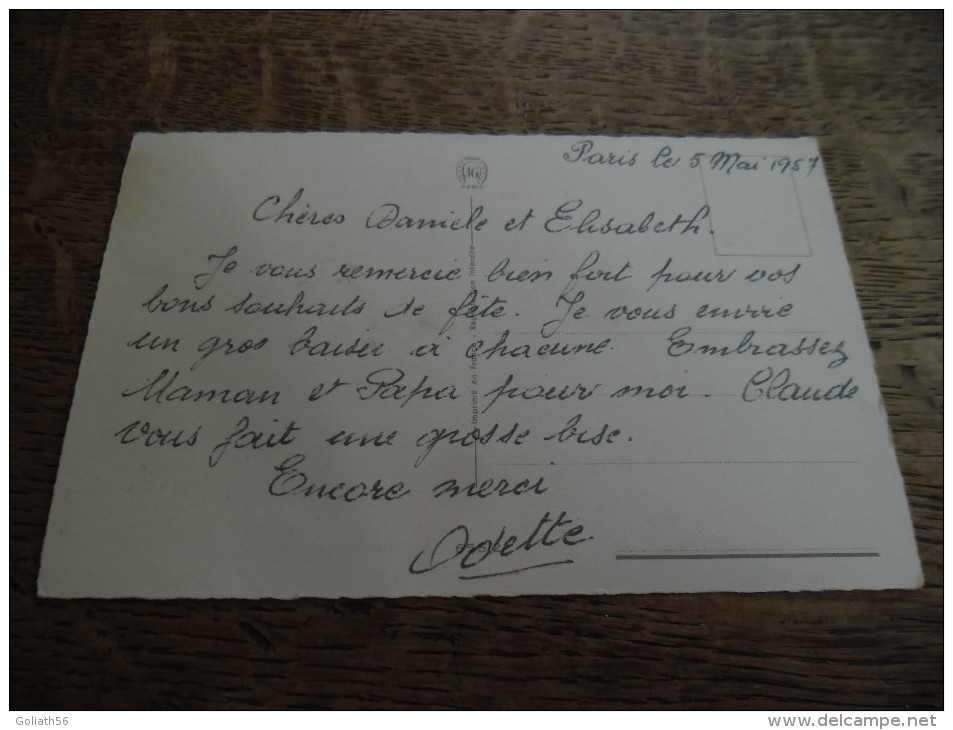 Paris le 5 Mai 1957
JG
PARIS
Chères Danièle et Elisabeth.
Je vous remercie bien fort pour vos
bons souhaits de fête. Je vous envoie
un gros baiser à chacune. Embrassez
Maman et Papa pour moi. Claude
vous fait une grosse bise.
Encore merci
Odette
Imprimé en France - Reproduction Interdite
Goliath56
www.delcampe.net